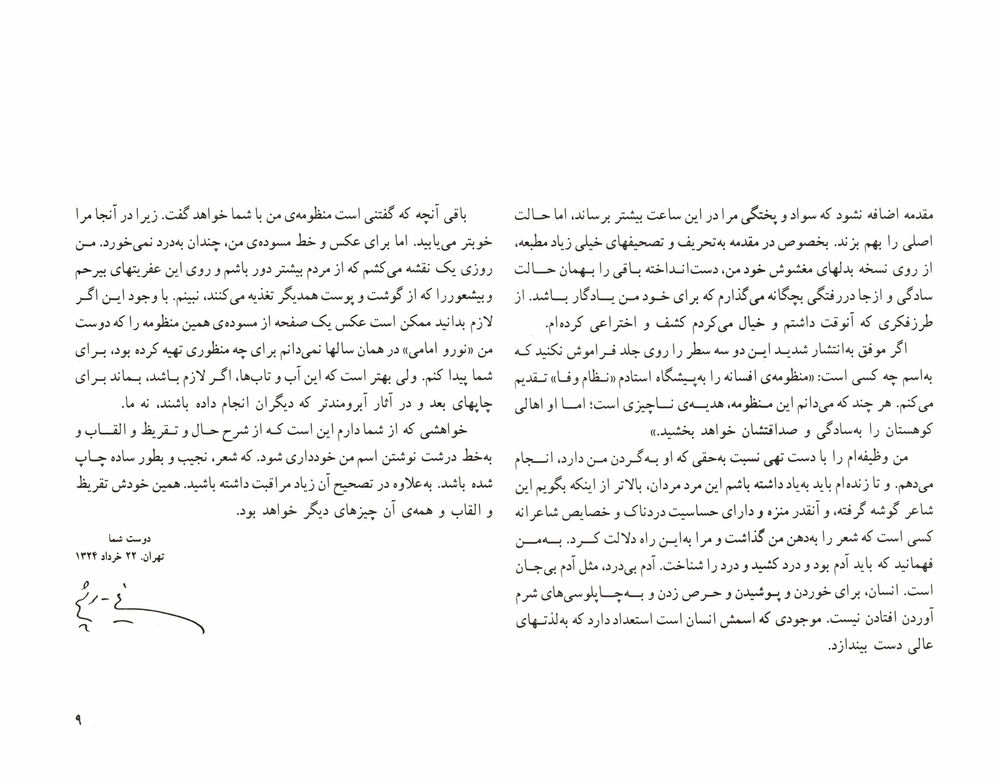 مقدمه اضافه نشود که سواد و پختگی مرا در این ساعت بیشتر برساند، اما حالت
اصلی را بهم بزند. بخصوص در مقدمه به‌تحریف و تصحیفهای خیلی زیاد مطبعه،
از روی نسخه بدلهای مغشوش خود من، دست‌انداخته باقی را بهمان حالت
سادگی و ازجا دررفتگی بچگانه می‌گذارم که برای خود من یادگار باشد. از
طرزفکری که آنوقت داشتم و خیال می‌کردم کشف و اختراعی کرده‌ام.
اگر موفق به‌انتشار شدید این دو سه سطر را روی جلد فراموش نکنید که
به‌اسم چه کسی است: «منظومه‌ی افسانه را به‌پیشگاه استادم «نظام وفا» تقدیم
می‌کنم. هر چند که می‌دانم این منظومه، هدیه‌ی ناچیزی است؛ اما او اهالی
کوهستان را به‌سادگی و صداقتشان خواهد بخشید.»
من وظیفه‌ام را با دست تهی نسبت به‌حقی که او به‌گردن من دارد، انجام
می‌دهم. و تا زنده‌ام باید به‌یاد داشته باشم این مرد مردان، بالاتر از اینکه بگویم این
شاعر گوشه گرفته، و آنقدر منزه و دارای حساسیت دردناک و خصایص شاعرانه
کسی است که شعر را به‌دهن من گذاشت و مرا به‌این راه دلالت کرد. به‌من
فهمانید که باید آدم بود و درد کشید و درد را شناخت. آدم بی‌درد، مثل آدم بی‌جان
است. انسان، برای خوردن و پوشیدن و حرص زدن و به‌چاپلوسی‌های شرم
آوردن افتادن نیست. موجودی که اسمش انسان است استعداد دارد که به‌لذتهای
عالی دست بیندازد.
باقی آنچه که گفتنی است منظومه‌ی من با شما خواهد گفت. زیرا در آنجا مرا
خوبتر می‌یابید. اما برای عکس و خط مسوده‌ی من، چندان به‌درد نمی‌خورد. من
روزی یک نقشه می‌کشم که از مردم بیشتر دور باشم و روی این عفریتهای بیرحم
و بیشعوررا که از گوشت و پوست همدیگر تغذیه می‌کنند، نبینم. با وجود این اگر
لازم بدانید ممکن است عکس یک صفحه از مسوده‌ی همین منظومه را که دوست
من «نورو امامی» در همان سالها نمی‌دانم برای چه منظوری تهیه کرده بود، برای
شما پیدا کنم. ولی بهتر است که این آب و تاب‌ها، اگر لازم باشد، بماند برای
چاپهای بعد و در آثار آبرومندتر که دیگران انجام داده باشند، نه ما.
خواهشی که از شما دارم این است که از شرح حال و تقریظ و القاب و
به‌خط درشت نوشتن اسم من خودداری شود. که شعر، نجیب و بطور ساده چاپ
شده باشد. به‌علاوه در تصحیح آن زیاد مراقبت داشته باشید. همین خودش تقریظ
و القاب و همه‌ی آن چیزهای دیگر خواهد بود.
دوست شما
تهران. ۲۲ خرداد ۱۳۲۴
۹